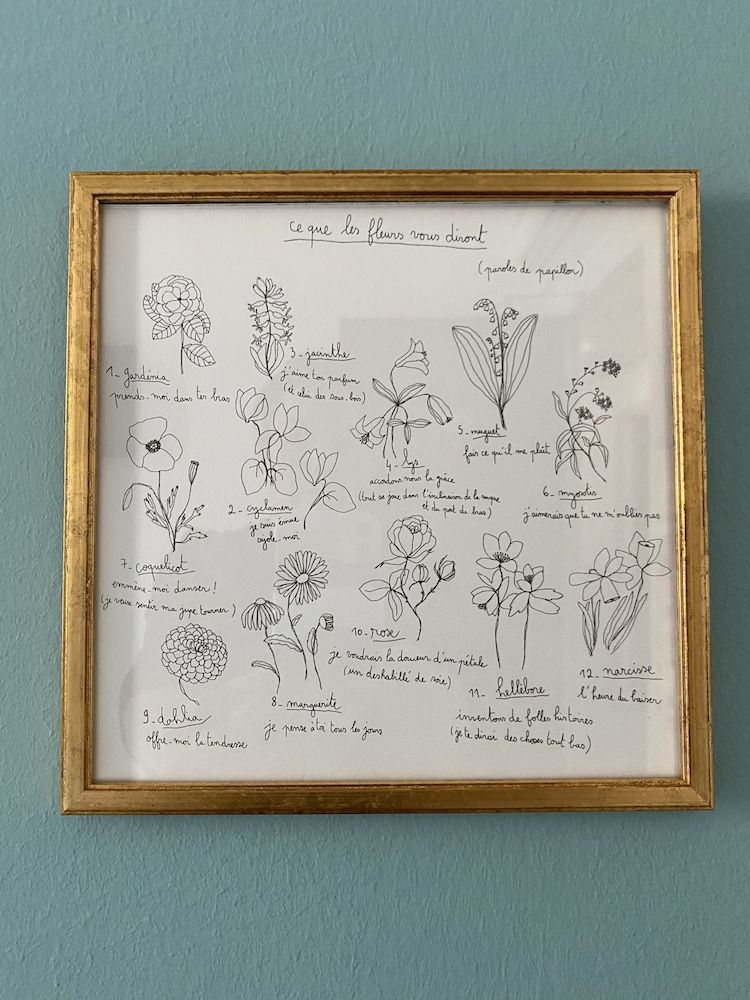 ce que les fleurs vous diront
(paroles de papillon)
1- gardénia
prends-moi dans tes bras
3- jacinthe
j'aime ton parfum
(et celui des sous-bois)
2- cyclamen
je suis émue
cajole-moi
4- lys
accordons nous la grâce
(tout se joue dans l'inclinaison de la nuque
et du port de bras)
5- muguet
fais ce qu'il me plaît
6- myosotis
j'aimerais que tu ne m'oublies pas
7- coquelicot
emmène-moi danser !
(je veux sentir ma jupe tourner)
9- dahlia
offre-moi la tendresse
8- marguerite
je pense à toi tous les jours
10- rose
je voudrais la douceur d'un pétale
(un deshabillé de soie)
11- hellébore
inventons de folles histoires
(je te dirai des choses tout bas)
12- narcisse
l'heure du baiser